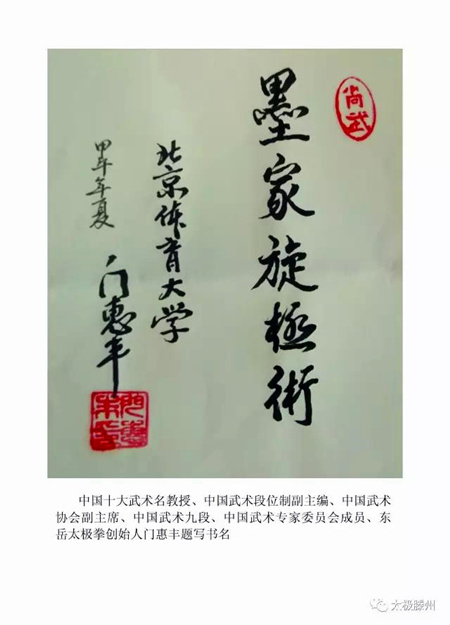 尚武
墨家旋極術
北京体育大学
甲午年夏
门惠丰
中国十大武术名教授、中国武术段位制副主编、中国武术
协会副主席、中国武术九段、中国武术专家委员会成员、东
岳太极拳创始人门惠丰题写书名
太极滕州